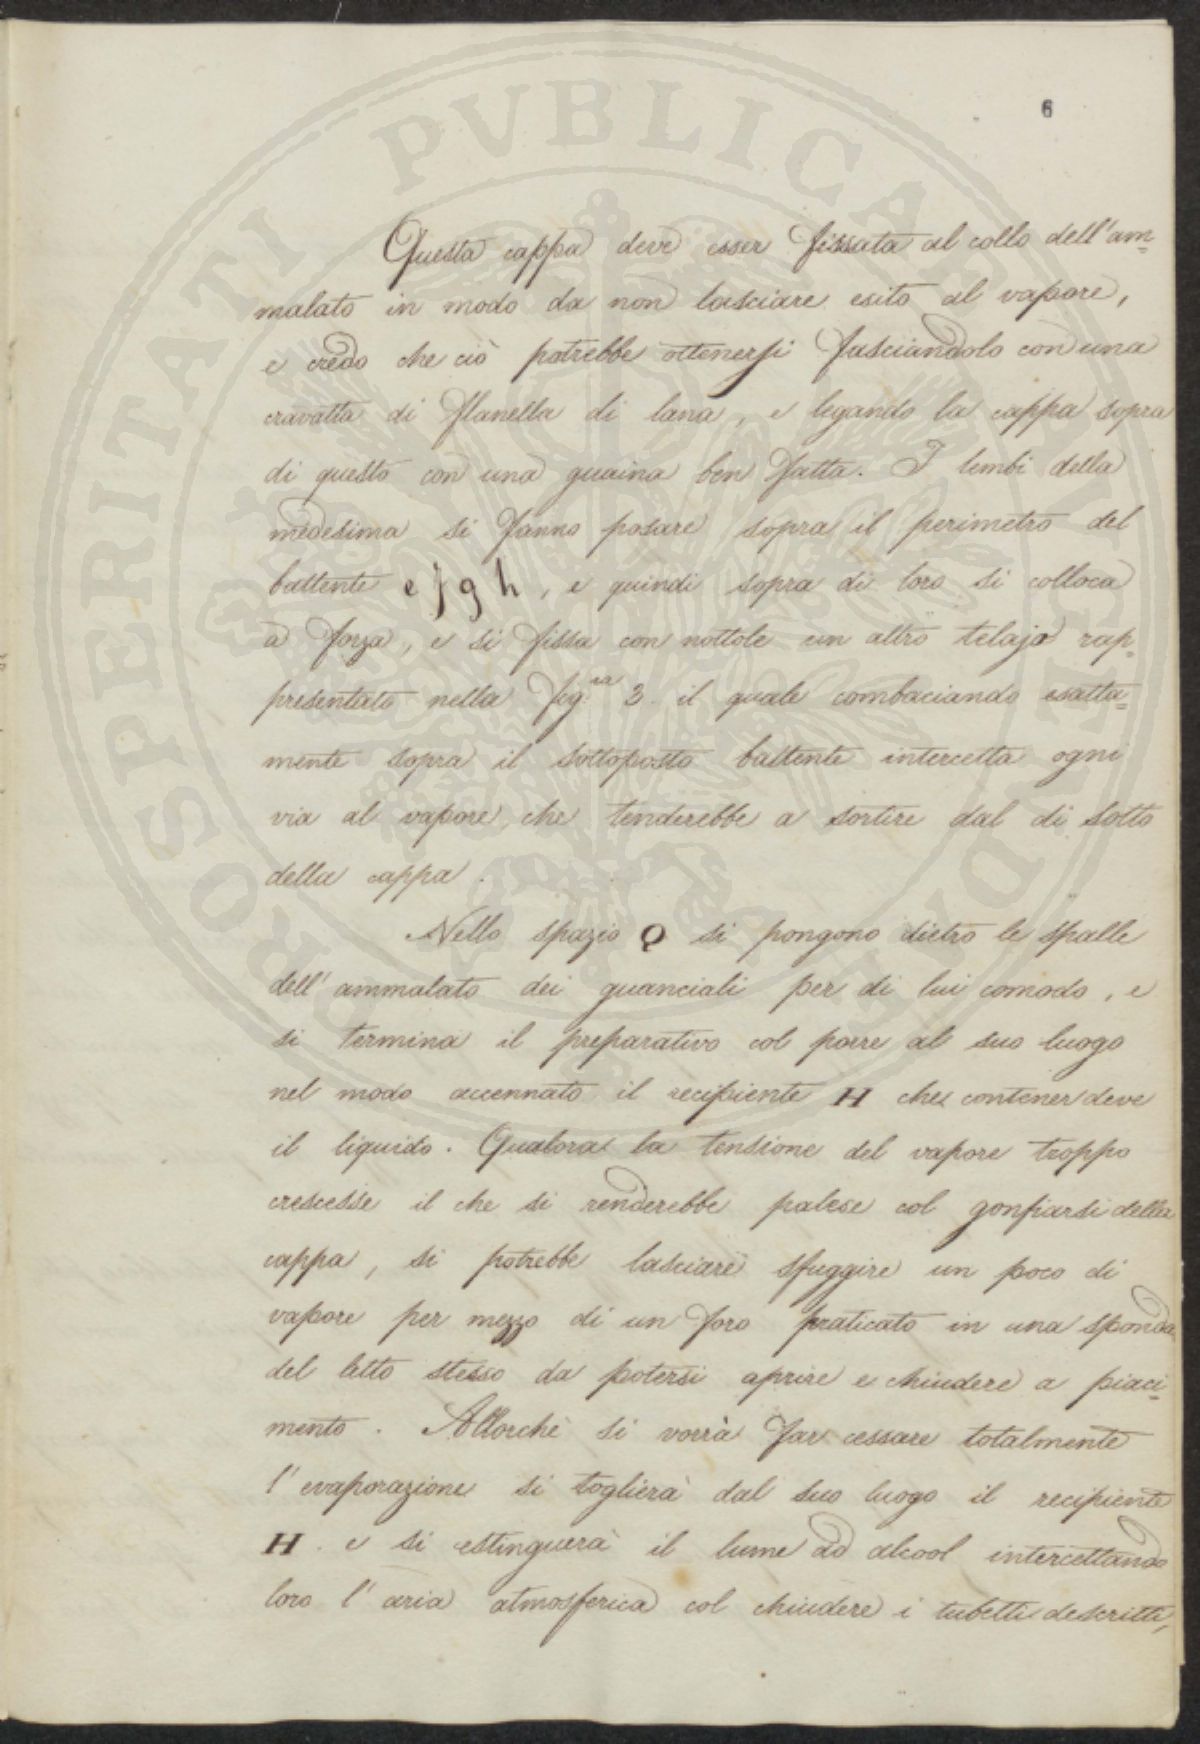 6
Questa cappa deve esser fissata al collo dell'am=
malato in modo da non lasciare esito al vapore,
e credo che ciò potrebbe ottenersi fasciandolo con una
cravatta di flanella di lana, e legando la cappa sopra
di questo con una guaina ben fatta. I lembi della
medesima si fanno posare sopra il perimetro del
battente e f g h, e quindi sopra di loro si colloca
a forza, e si fissa con nottole un altro telajo rap=
presentato nella Fig.ra 3. il quale combaciando esatta=
mente sopra il sottoposto battente intercetta ogni
via al vapore, che tenderebbe a sortire dal di sotto
della cappa.
Nello spazio Q si pongono dietro le spalle
dell'ammalato dei guanciali per di lui comodo, e
si termina il preparativo col porre al suo luogo
nel modo accennato il recipiente H che contener deve
il liquido. Qualora la tensione del vapore troppo
crescesse il che si renderebbe palese col gonfiarsi della
cappa, si potrebbe lasciare sfuggire un poco di
vapore per mezzo di un foro praticato in una sponda
del letto stesso da potersi aprire e chiudere a piaci=
mento. Allorchè si vorrà far cessare totalmente
l'evaporazione si toglierà dal suo luogo il recipiente
H. e si estinguerà il lume ad alcool intercettando
loro l'aria atmosferica col chiudere i tubetti descritti,
PROSPERITATI PVBLICAE AVGENDAE